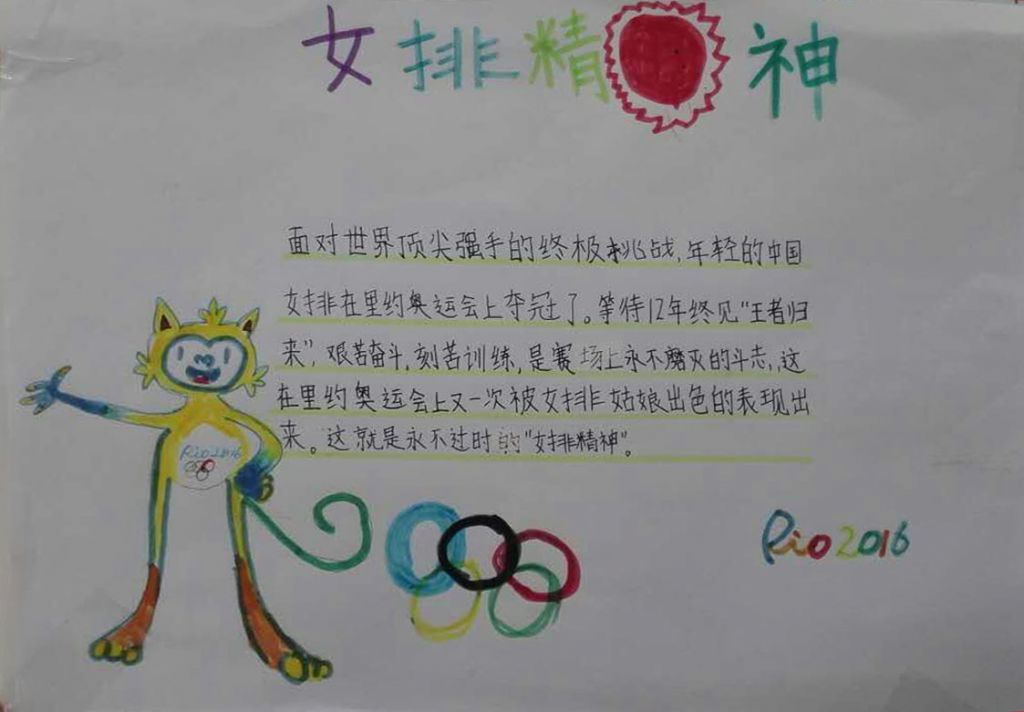 女排精神
面对世界顶尖强手的终极挑战,年轻的中国
女排在里约奥运会上夺冠了。等待12年终见"王者归
来",艰苦奋斗,刻苦训练,是赛场上永不磨灭的斗志,这
在里约奥运会上又一次被女排姑娘出色的表现出
来。这就是永不过时的"女排精神"。
Rio2016
Rio2016